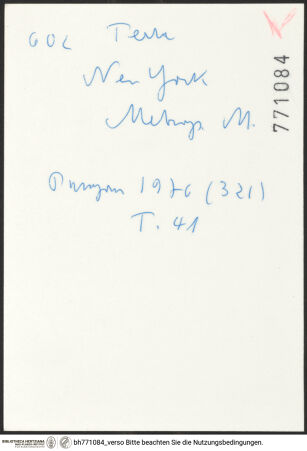 GOC Testa
New York
Metrop. M.
771084
1976 (321)
T. 41
BIBLIOTHECA HERTZIANA bh771084_verso Bitte beachten Sie die Nutzungsbedingungen.